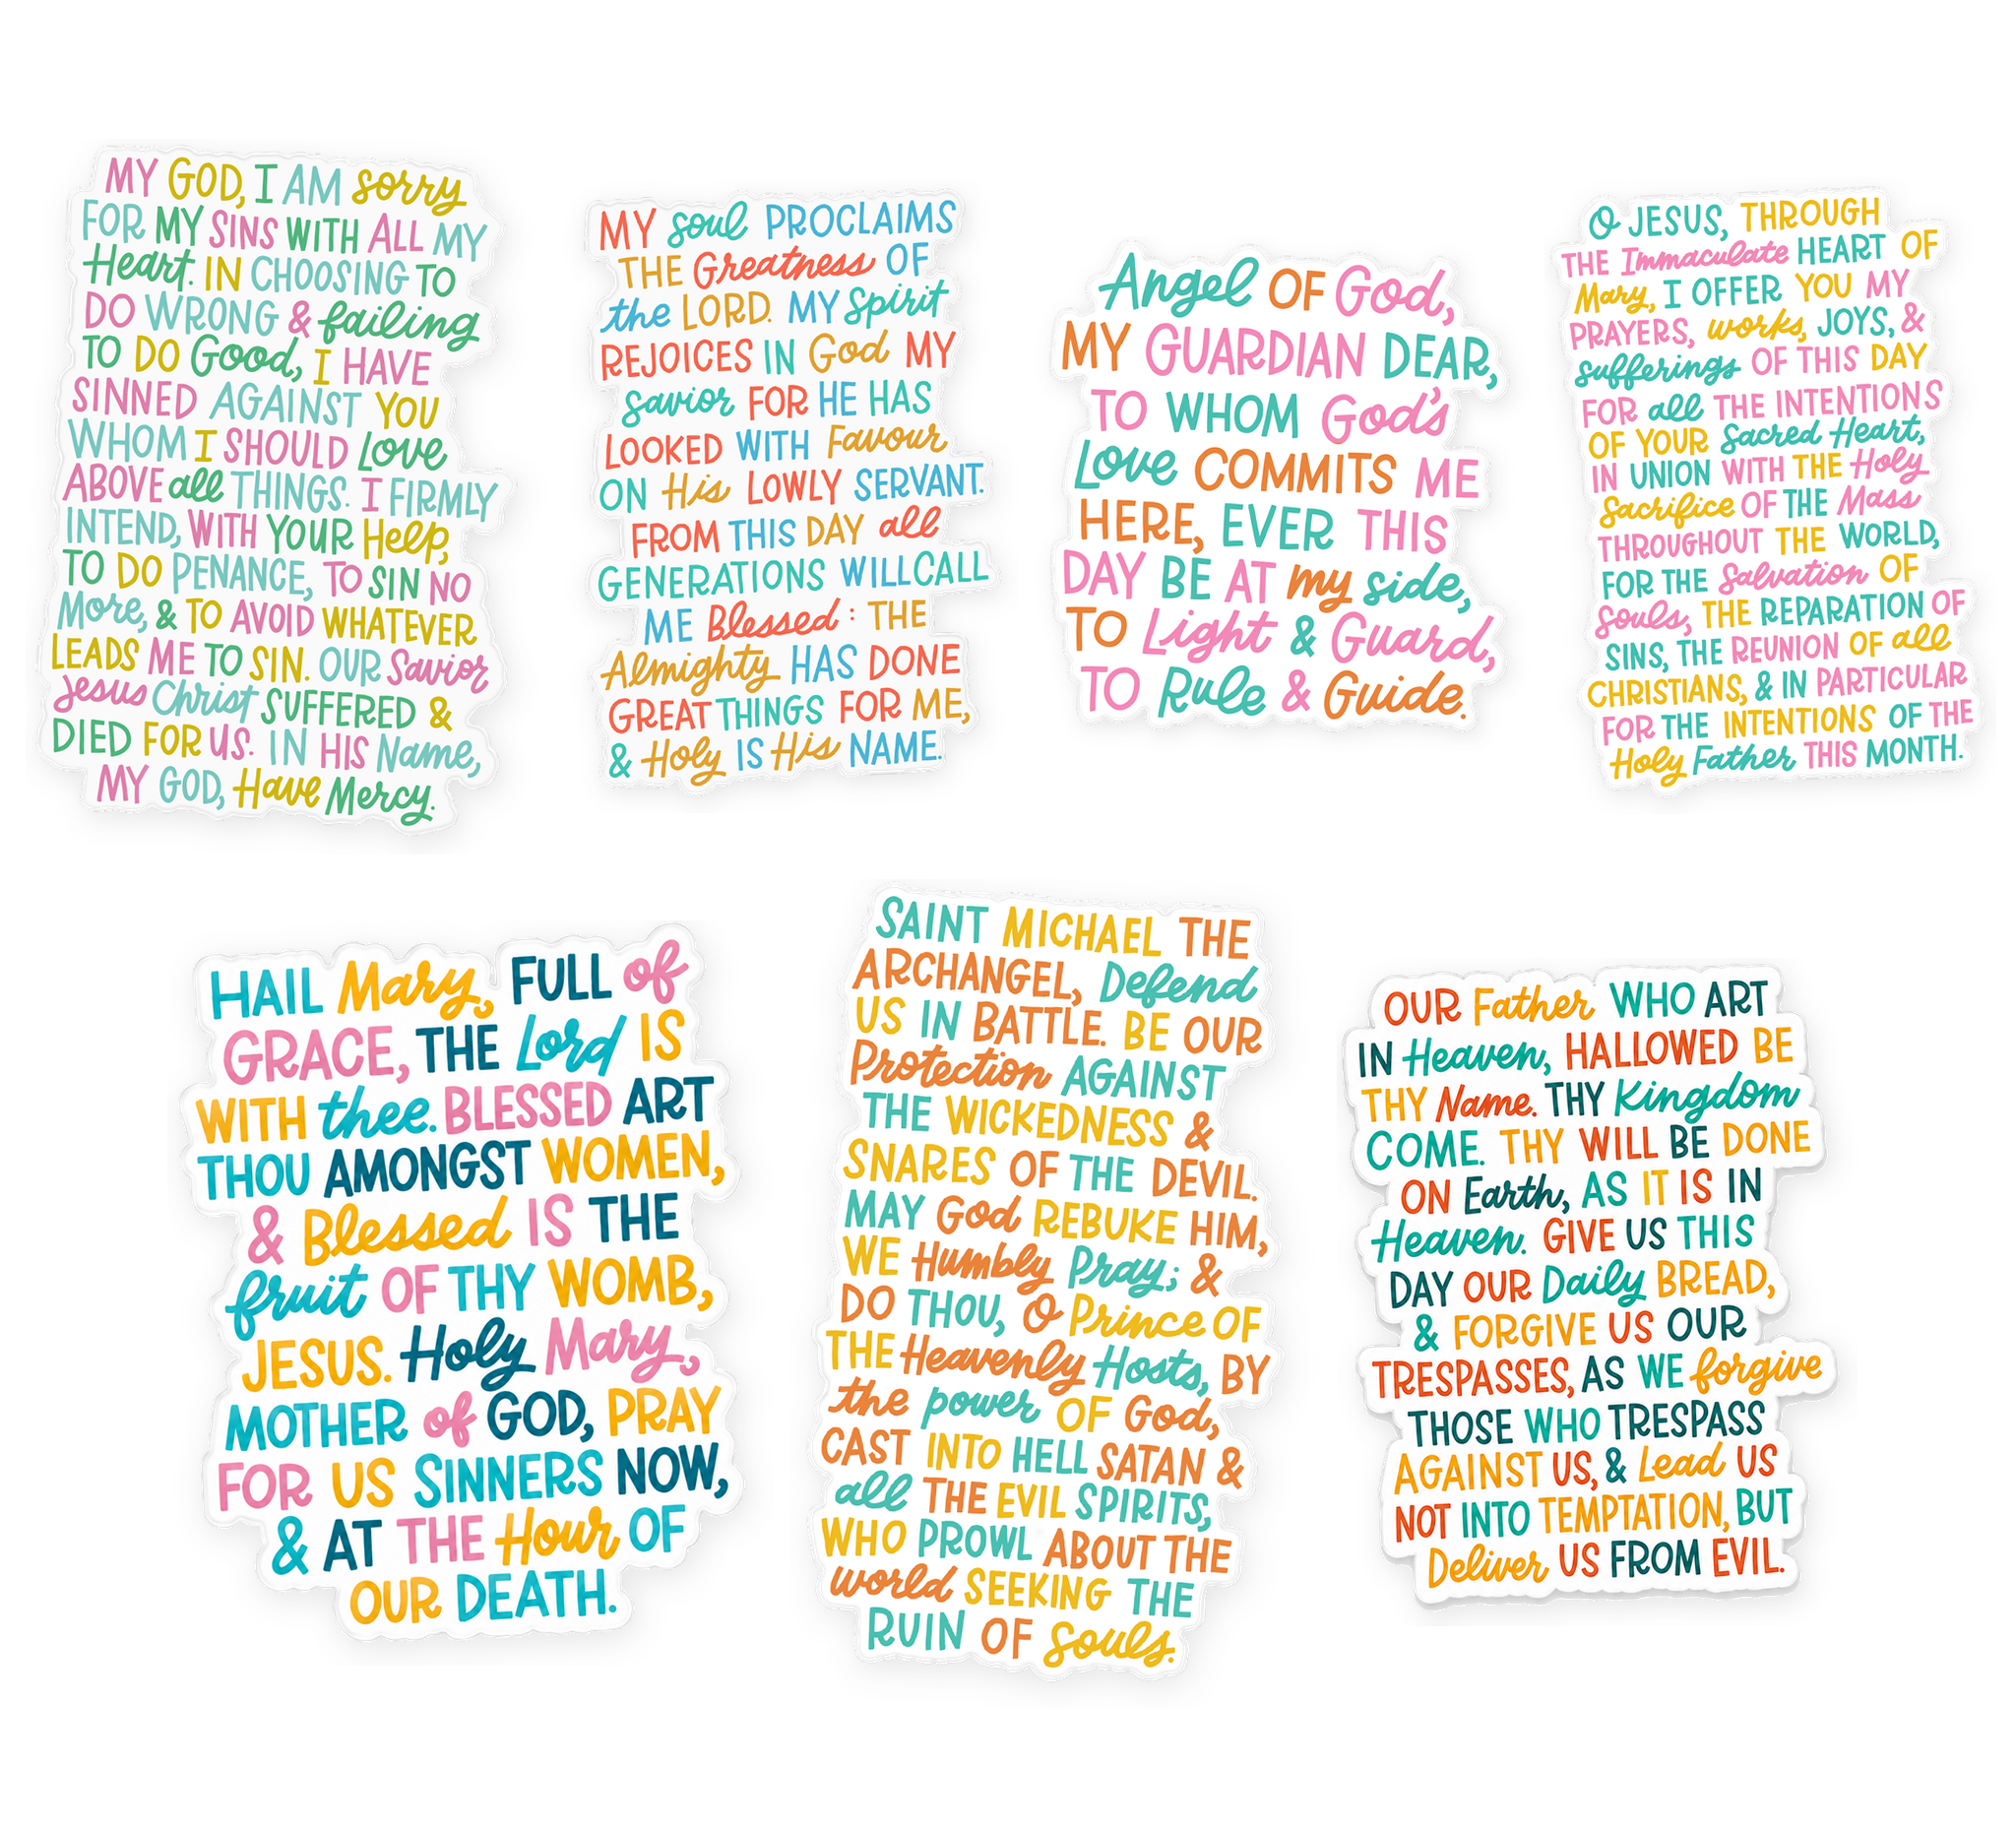 MY GOD, I AM sorry
FOR MY SINS WITH ALL MY
Heart. IN CHOOSING TO
DO WRONG & failing
TO DO Good, I HAVE
SINNED AGAINST YOU
WHOM I SHOULD Love
ABOVE all THINGS. I FIRMLY
INTEND, WITH YOUR Help,
TO DO PENANCE, TO SIN NO
More, & TO AVOID WHATEVER
LEADS ME TO SIN. OUR Savior
Jesus Christ SUFFERED &
DIED FOR US. IN HIS Name,
MY GOD, Have Mercy.
MY soul PROCLAIMS
THE Greatness OF
the LORD. MY Spirit
REJOICES IN God MY
Savior FOR HE HAS
LOOKED WITH Favour
ON His LOWLY SERVANT.
FROM THIS DAY all
GENERATIONS WILL CALL
ME Blessed: THE
Almighty HAS DONE
GREAT THINGS FOR ME,
& Holy IS His NAME.
Angel OF God,
MY GUARDIAN DEAR,
TO WHOM God's
Love COMMITS ME
HERE, EVER THIS
DAY BE AT my side,
TO Light & Guard,
TO Rule & Guide.
O JESUS, THROUGH
THE Immaculate HEART OF
Mary, I OFFER YOU MY
PRAYERS, works, JOYS, &
sufferings OF THIS DAY
FOR all THE INTENTIONS
OF YOUR Sacred Heart,
IN UNION WITH THE Holy
Sacrifice OF THE Mass
THROUGHOUT THE WORLD,
FOR THE Salvation OF
Souls, THE REPARATION OF
SINS, THE REUNION OF all
CHRISTIANS, & IN PARTICULAR
FOR THE INTENTIONS OF THE
Holy Father THIS MONTH.
HAIL Mary, FULL of
GRACE, THE Lord IS
WITH thee. BLESSED ART
THOU AMONGST WOMEN,
& Blessed IS THE
fruit OF THY WOMB,
JESUS. Holy Mary,
MOTHER of GOD, PRAY
FOR US SINNERS NOW,
& AT THE Hour OF
OUR DEATH.
SAINT MICHAEL THE
ARCHANGEL, Defend
US IN BATTLE. BE OUR
Protection AGAINST
THE WICKEDNESS &
SNARES OF THE DEVIL.
MAY God REBUKE HIM,
WE Humbly Pray; &
DO THOU, O Prince OF
THE Heavenly Hosts, BY
the power OF God,
CAST INTO HELL SATAN &
all THE EVIL SPIRITS,
WHO PROWL ABOUT THE
world SEEKING THE
RUIN OF Souls.
OUR Father WHO ART
IN Heaven, HALLOWED BE
THY Name. THY Kingdom
COME. THY WILL BE DONE
ON Earth, AS IT IS IN
Heaven. GIVE US THIS
DAY OUR Daily BREAD,
& FORGIVE US OUR
TRESPASSES, AS WE forgive
THOSE WHO TRESPASS
AGAINST US, & Lead US
NOT INTO TEMPTATION, BUT
Deliver US FROM EVIL.